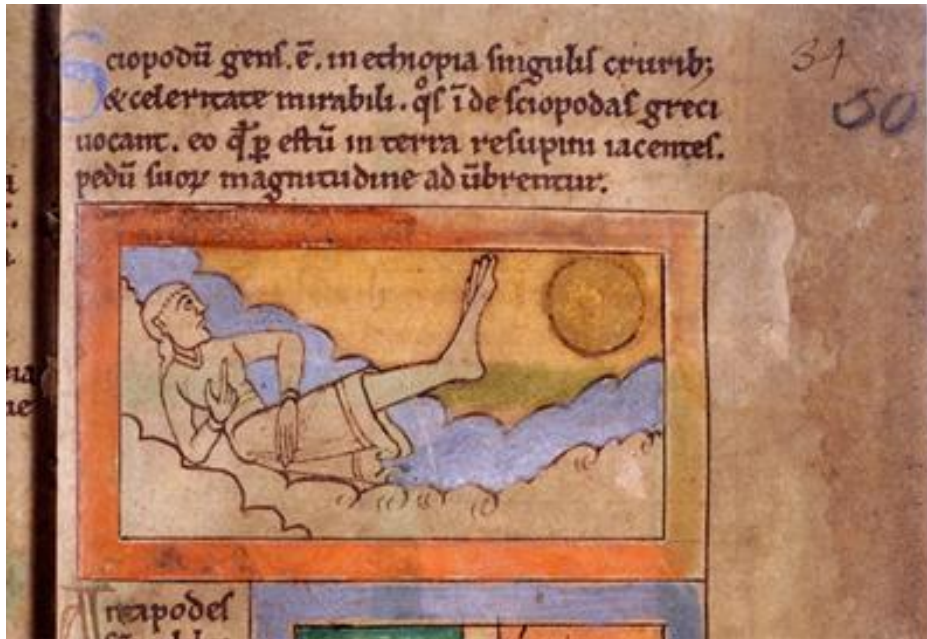 Sciopodū gens. ē. in ethiopia singulis crurib;
& celeritate mirabili. q̊s īde sciopodas greci
uocant. eo qḋ ꝑ estū in terra resupini iacentes.
pedū suoꝝ magnitudine ad ūbrentur.
34
50
Antapodes